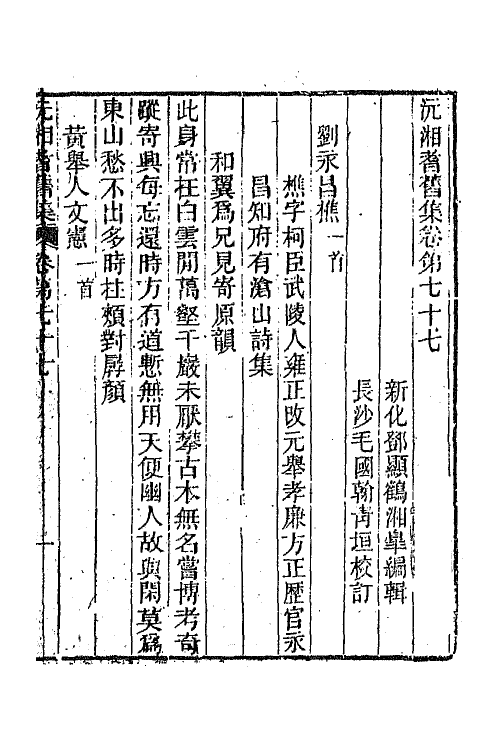 沅湘耆舊集卷第七十七
新化鄧顯鶴湘臯編輯
長沙毛國翰青垣校訂
劉永昌樵一首
樵字柯臣武陵人雍正改元舉孝廉方正歷官永
昌知府有滄山詩集
和翼爲兄見寄原韻
此身常在白雲閒萬壑千巖未厭攀古木無名嘗博考奇
蹤寄興每忘還時方有道慙無用天使幽人故與閑莫爲
東山愁不出多時拄頰對孱顏
黃舉人文憲一首
沅湘耆舊集 卷第七十七 一